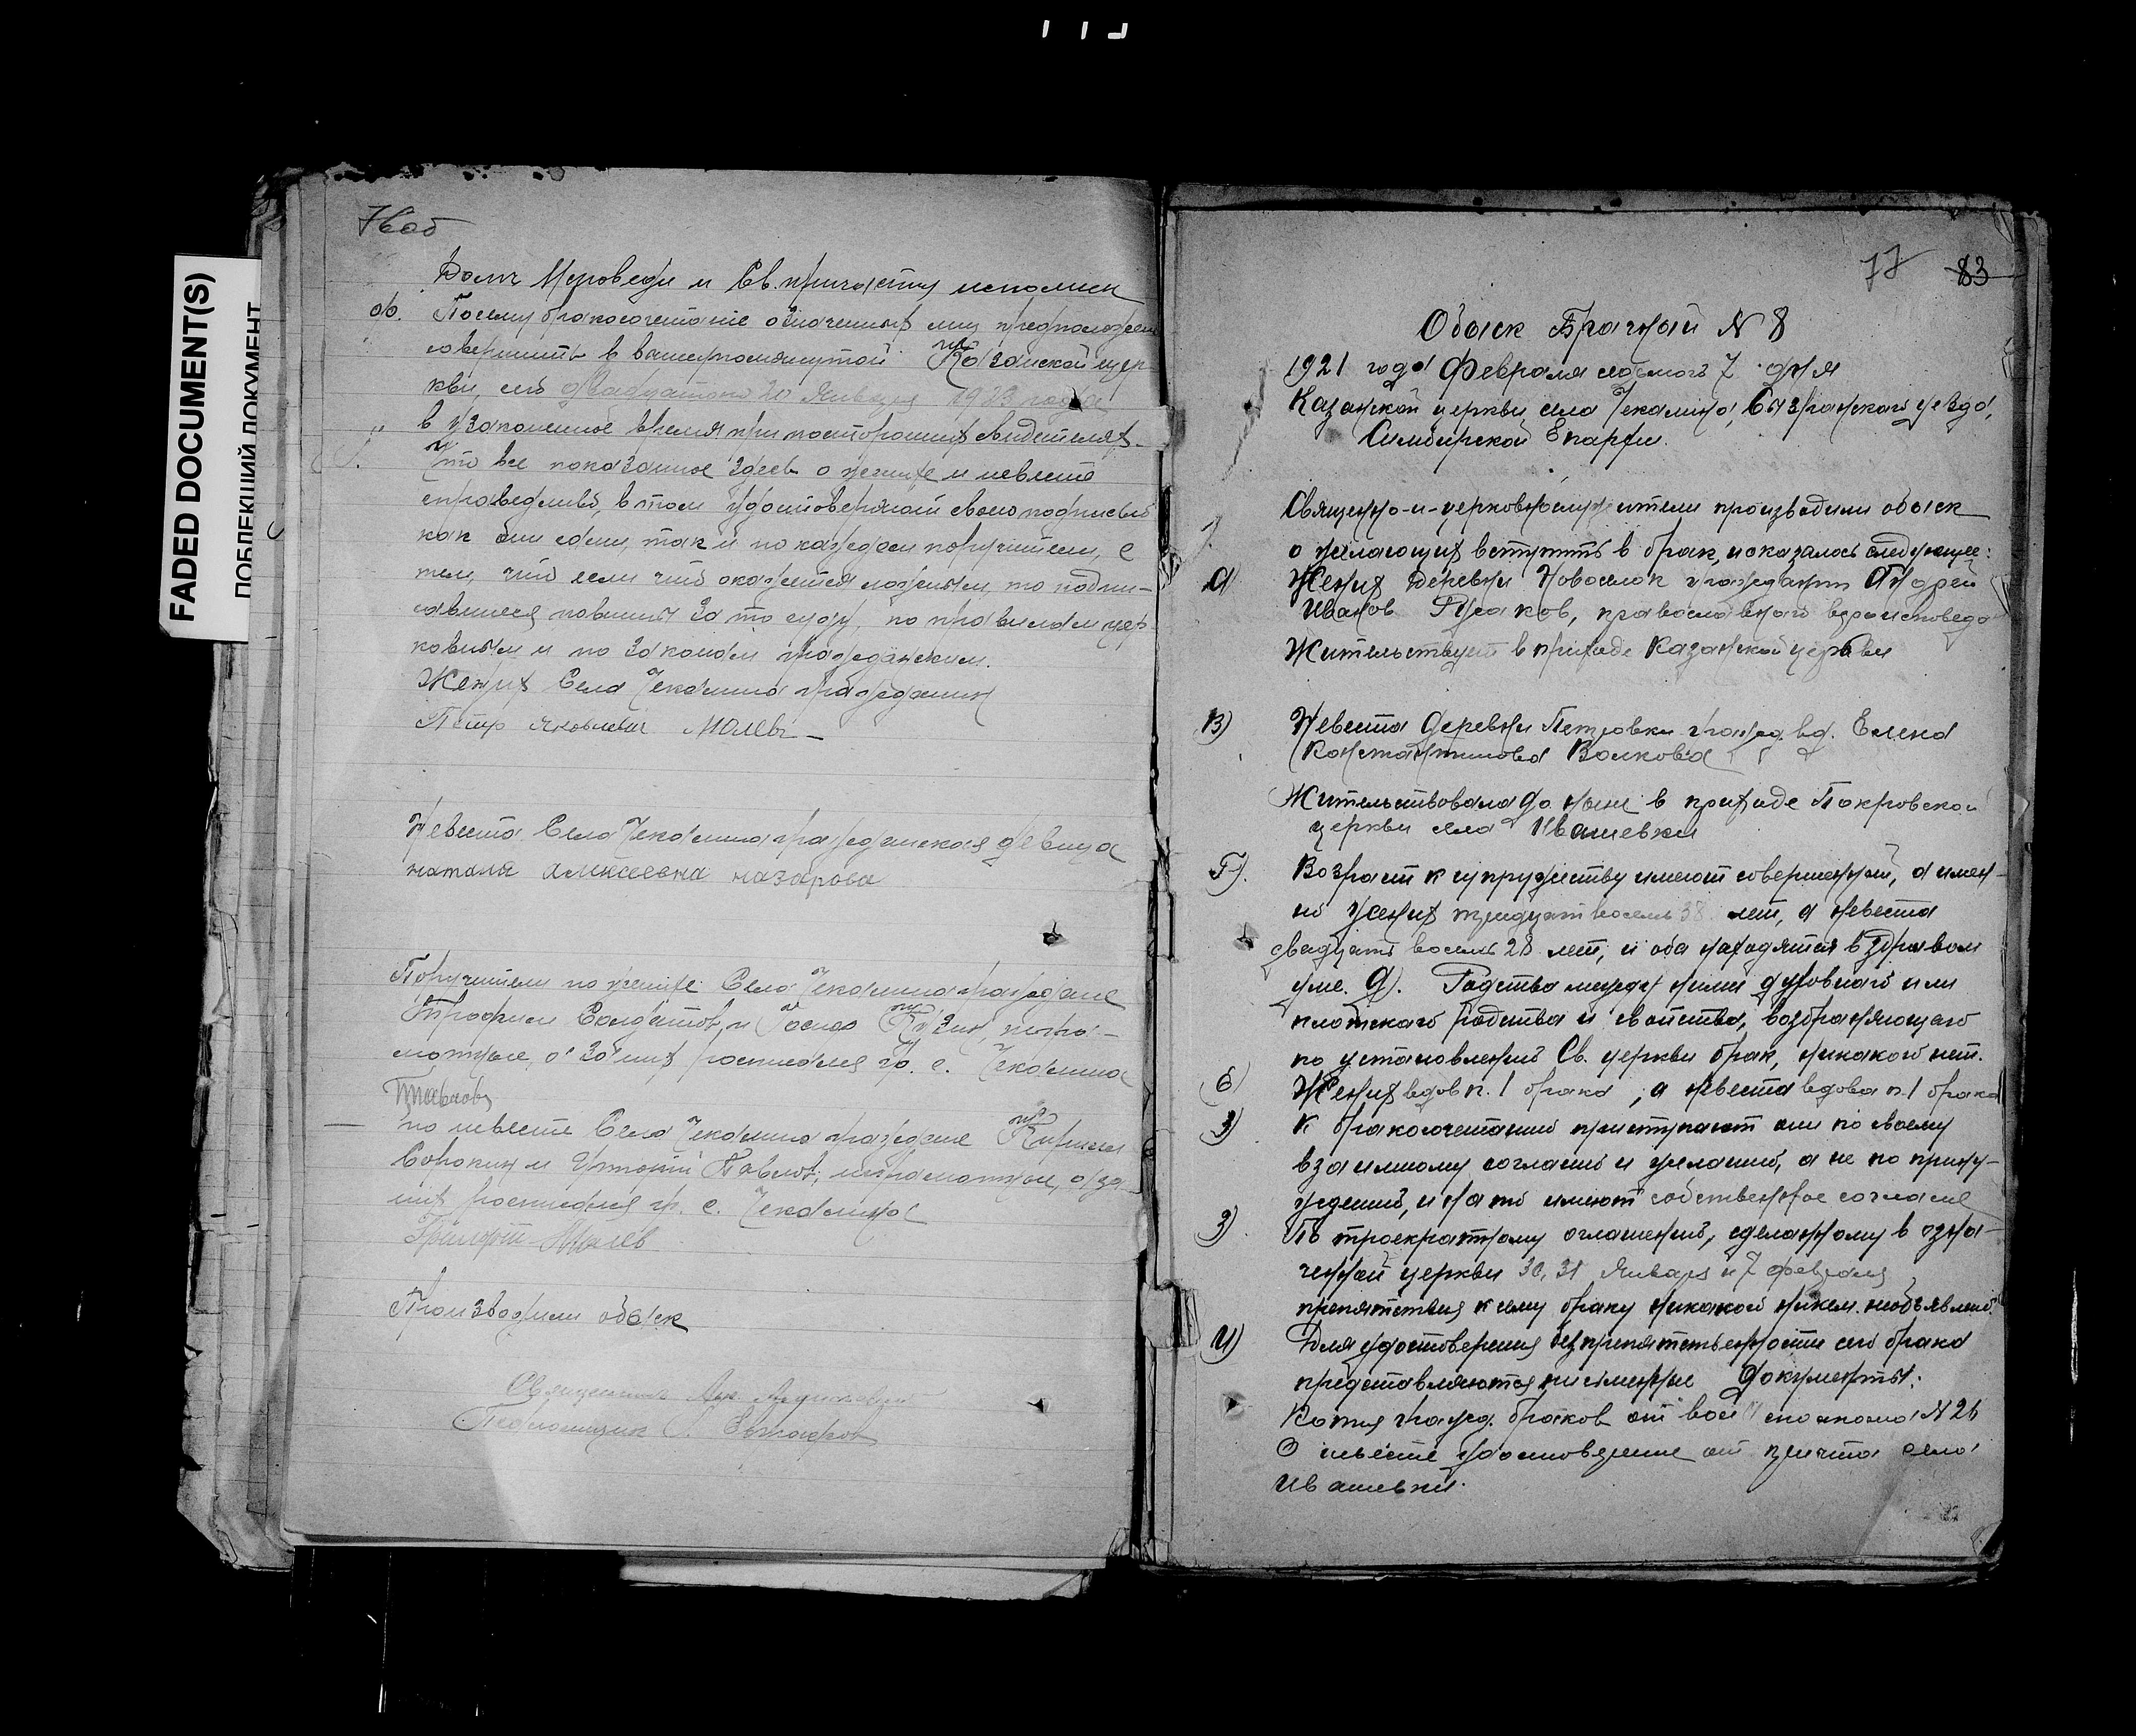 FADED DOCUMENT(S)
ПОБЛЕКШИЙ ДОКУМЕНТ
76 об
Долг Исповеди и Св. причастия исполнен
Посему бракосочетание означенных лиц предположено
совершить в вышеупомянутой Казанской цер-
кви, сего двадцатого 20 Января 1923 года
в узаконенное время при посторонних свидетелях.
Что все показанное здесь о женихе и невесте
справедливо, в том удостоверяют своею подписью
как они сами, так и по каждом поручители, с
тем, что если что окажется ложным, то подпи-
савшиеся повинны за то суду, по правилам цер-
ковным и по законам гражданским.
Жених Села Чекалина гражданин
Петр Яковлевич Малев
Невеста Села Чекалина гражданская девица
наталя алексеевна назарова
Поручители по женихе Села Чекалина граждане
Трофим Солдатов, и Кузин, негра-
мотные, а за них росписался гр. с. Чекалина
по невесте Села Чекалина граждане Кирилл
Сорокин и Павлов, неграмотные, а за
них росписался гр. с. Чекалина
Малев
Производили обыск
Священник
Псаломщик Евтафов
77 83
Обыск Брачный N 8
1921 года Февраля седмого 7 дня
Казанской церкви села Чекалина, Сызранского уезда,
Симбирской Епархии.
Священно-и-церковнослужители производили обыск
о желающих вступить в брак, и оказалось следующее:
А) Жених деревни Новоселок гражданин Андрей
Иванов Гусаков, православного вероисповеда
Жительствует в приходе Казанской церкви
В) Невеста деревни Петровки гражд. вд. Елена
Константинова Волкова
Жительствовала до ныне в приходе Покровской
церкви села Ивашевки
Г). Возраст к супружеству имеют совершенный, а имен-
но жених тридцат восемь 38 лет, а невеста
двадцать восемь 28 лет, и оба находятся в здравом
уме. Д). Родства между ними духовного или
плотского родства и свойства, возбраняющего
по установлению Св. церкви брак, никакого нет.
Е) Жених вдов п. 1 брака, а невеста вдова п. 1 брака
З) К бракосочетанию приступают они по своему
взаимному согласию и желанию, а не по прину-
ждению, и на то имеют собственное согласие
З) По троекратному оглашению, сделанному в озна-
ченной церкви 30, 31 Января и 7 февраля
препятствия к сему браку никакой никем необъявлено.
И) Для удостоверения безпрепятственности сего брака
представляются письменные документы:
Копия гражд. браков от N 26
О невесте удостоверение от причта села
Ивашевки.